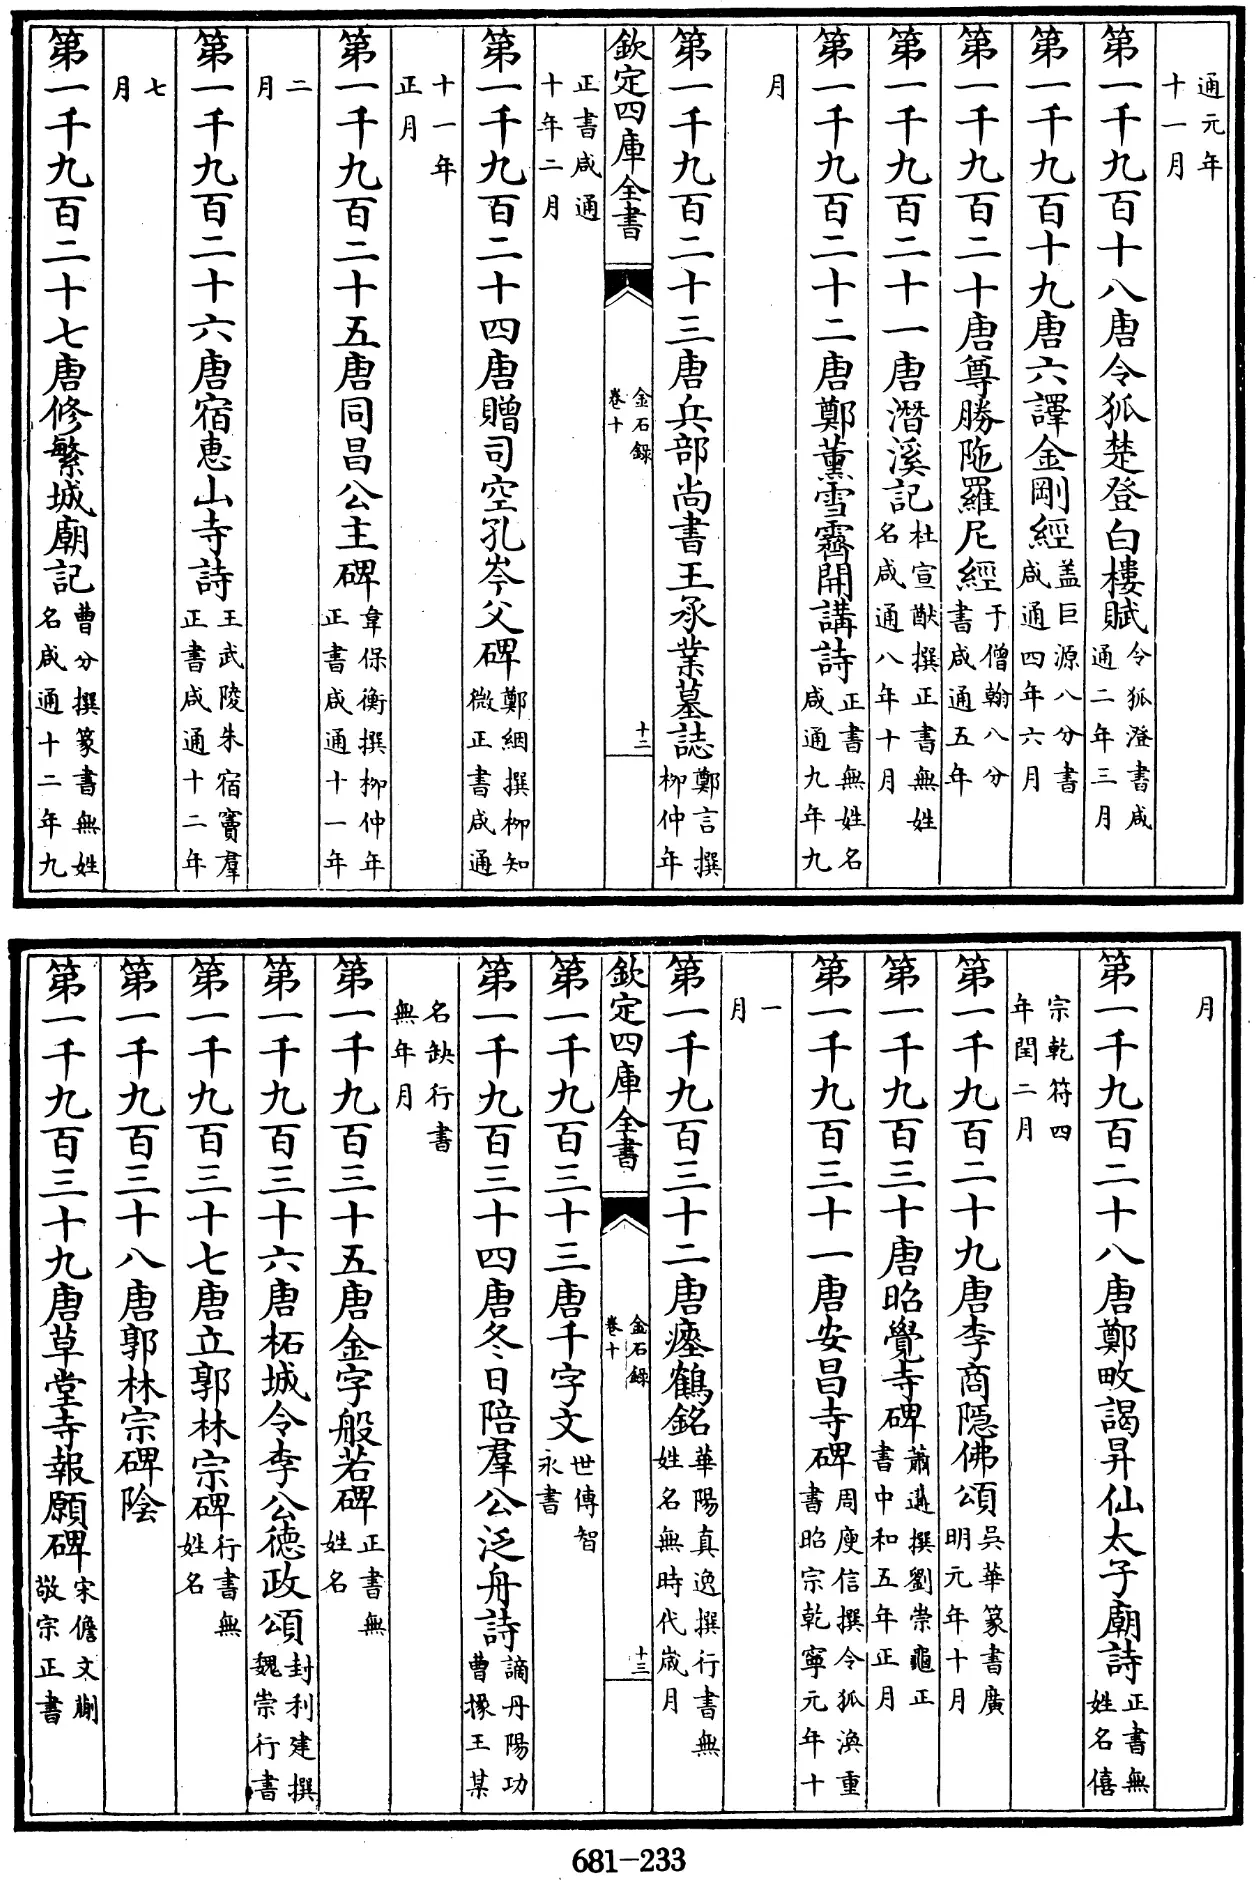 通元年十一月
第一千九百十八唐令狐楚登白樓賦令狐澄書咸通二年三月
第一千九百十九唐六譯金剛經盖巨源八分書咸通四年六月
第一千九百二十唐尊勝陁羅尼經于僧翰八分書咸通五年
第一千九百二十一唐潛溪記杜宣猷撰正書無姓名咸通八年十月
第一千九百二十二唐鄭薰雪霽開講詩正書無姓名咸通九年九
月
第一千九百二十三唐兵部尚書王承業墓誌鄭言撰柳仲年
欽定四庫全書
金石錄
卷十
十二
正書咸通十年二月
第一千九百二十四唐贈司空孔岑父碑鄭絪撰柳知微正書咸通
十一年正月
第一千九百二十五唐同昌公主碑韋保衡撰柳仲年正書咸通十一年
二月
第一千九百二十六唐宿惠山寺詩王武陵朱宿竇羣正書咸通十二年
七月
第一千九百二十七唐修繁城廟記曹分撰篆書無姓名咸通十二年九
月
第一千九百二十八唐鄭畋謁昇仙太子廟詩正書無姓名僖
宗乾符四年閏二月
第一千九百二十九唐李商隱佛頌吳華篆書廣明元年十月
第一千九百三十唐昭覺寺碑蕭遘撰劉崇龜正書中和五年正月
第一千九百三十一唐安昌寺碑周庾信撰令狐渙重書昭宗乾寧元年十
一月
第一千九百三十二唐瘞鶴銘華陽真逸撰行書無姓名無時代歳月
欽定四庫全書
金石錄
卷十
十三
第一千九百三十三唐千字文世傳智永書
第一千九百三十四唐冬日陪羣公泛舟詩謫丹陽功曹掾王某
名缺行書無年月
第一千九百三十五唐金字般若碑正書無姓名
第一千九百三十六唐柘城令李公德政頌封利建撰魏崇行書
第一千九百三十七唐立郭林宗碑行書無姓名
第一千九百三十八唐郭林宗碑陰
第一千九百三十九唐草堂寺報願碑宋儋文敬宗正書
681-233